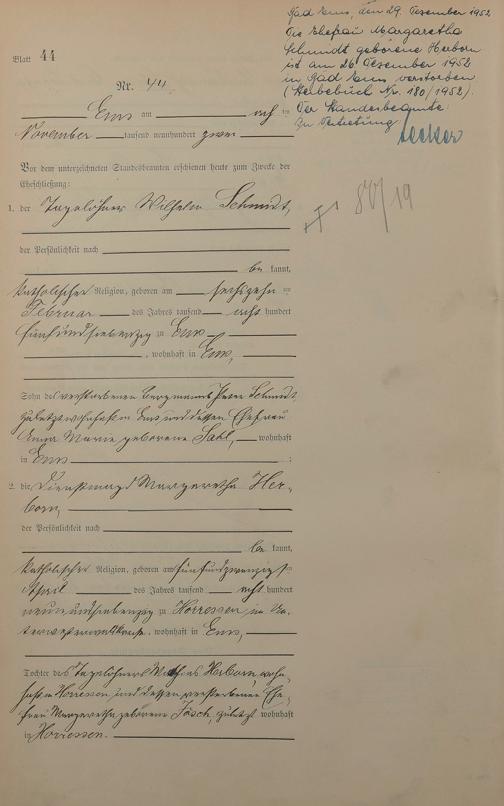 Bad Ems, den 29. Dezember 1952
Die Ehefrau Margaretha
Schmidt geborene Herborn
ist am 26. Dezember 1952
in Bad Ems verstorben
(Sterbebuch Nr. 180/1952).
Der Standesbeamte
In Vertretung
Blatt 44
Nr. 44.
Ems am acht ten
November tausend neunhundert zwei
Vor dem unterzeichneten Standesbeamten erschienen heute zum Zwecke der
Eheschließung:
1. der Tagelöhner Wilhelm Schmidt,
der Persönlichkeit nach
be kannt,
katholischer Religion, geboren am sechszehn ten
Februar des Jahres tausend acht hundert
fünfundsiebenzig zu Ems
, wohnhaft in Ems,
Sohn des verstorbenen Bergmanns Peter Schmidt,
zuletzt wohnhaft in Ems und dessen Ehefrau
Anna Maria geborene wohnhaft
in Ems :
2. die Dienstmagd Margaretha Her-
born,
der Persönlichkeit nach
be kannt,
katholischer Religion, geboren am fünfundzwanzigsten
April des Jahres tausend acht hundert
neunundsiebenzig zu Horressen, im Un-
terwesterwaldkreise, wohnhaft in Ems,
Tochter des Tagelöhners Mathias Herborn, wohn-
haft in Horressen, und dessen verstorbenen Ehe-
frau Margaretha geborene zuletzt wohnhaft
in Horressen.